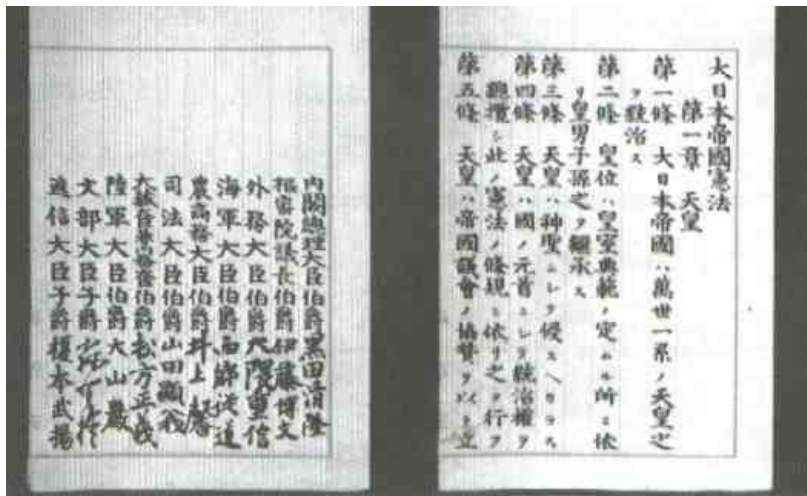 大日本帝國憲法
第一章 天皇
第一條 大日本帝國ハ萬世一系ノ天皇之
ヲ統治ス
第二條 皇位ハ皇室典範ノ定ムル所ニ依
リ皇男子孫之ヲ繼承ス
第三條 天皇ハ神聖ニシテ侵スヘカラス
第四條 天皇ハ國ノ元首ニシテ統治權ヲ
總攬シ此ノ憲法ノ條規ニ依リ之ヲ行フ
第五條 天皇ハ帝國議會ノ協贊ヲ以テ立
內閣總理大臣伯爵黑田清隆
樞密院議長伯爵伊藤博文
外務大臣伯爵大隈重信
海軍大臣伯爵西鄉從道
農商務大臣伯爵井上馨
司法大臣伯爵山田顯義
大藏大臣兼內務大臣伯爵松方正義
陸軍大臣伯爵大山巖
文部大臣子爵森有禮
遞信大臣子爵榎本武揚